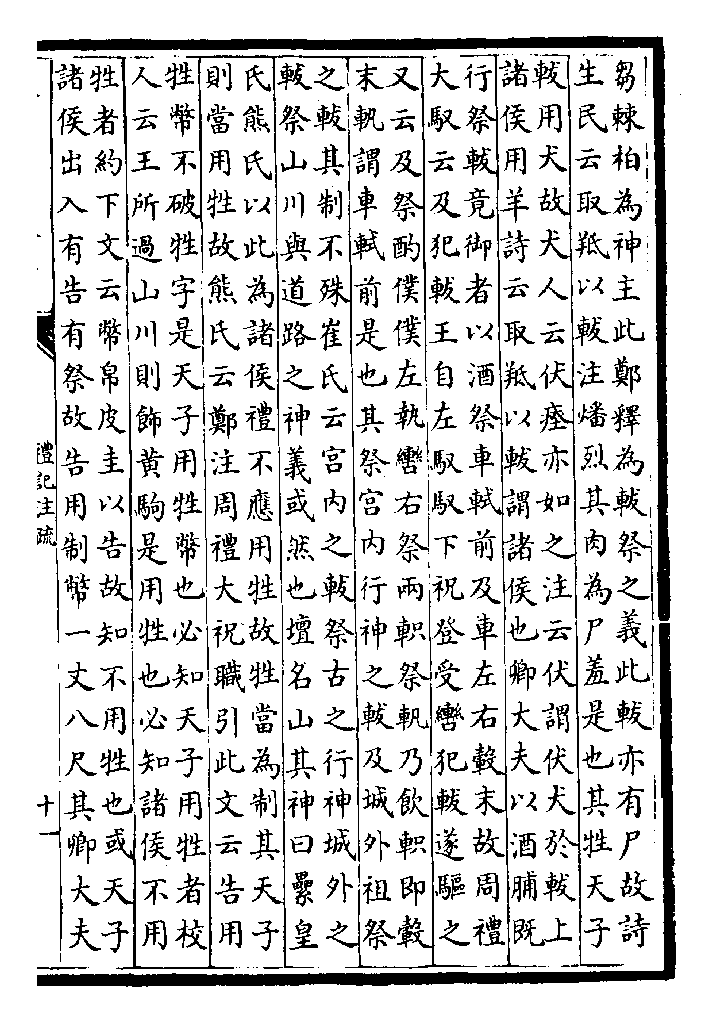 芻棘柏為神主此鄭釋為軷祭之義此軷亦有尸故詩
生民云取羝以軷注燔烈其肉為尸羞是也其牲天子
軷用犬故犬人云伏瘞亦如之注云伏謂伏犬於軷上
諸侯用羊詩云取羝以軷謂諸侯也卿大夫以酒脯既
行祭軷竟御者以酒祭車軾前及車左右轂末故周禮
大馭云及犯軷王自左馭馭下祝登受轡犯軷遂驅之
又云及祭酌僕僕左執轡右祭兩軹祭軓乃飲軹即轂
末軓謂車軾前是也其祭宮内行神之軷及城外祖祭
之軷其制不殊崔氏云宮内之軷祭古之行神城外之
軷祭山川與道路之神義或然也壇名山其神曰纍皇
氏熊氏以此為諸侯禮不應用牲故牲當為制其天子
則當用牲故熊氏云鄭注周禮大祝職引此文云告用
牲幣不破牲字是天子用牲幣也必知天子用牲者校
人云王所過山川則飾黄駒是用牲也必知諸侯不用
牲者約下文云幣帛皮圭以告故知不用牲也或天子
諸侯出入有告有祭故告用制幣一丈八尺其卿大夫
禮記注疏
十一